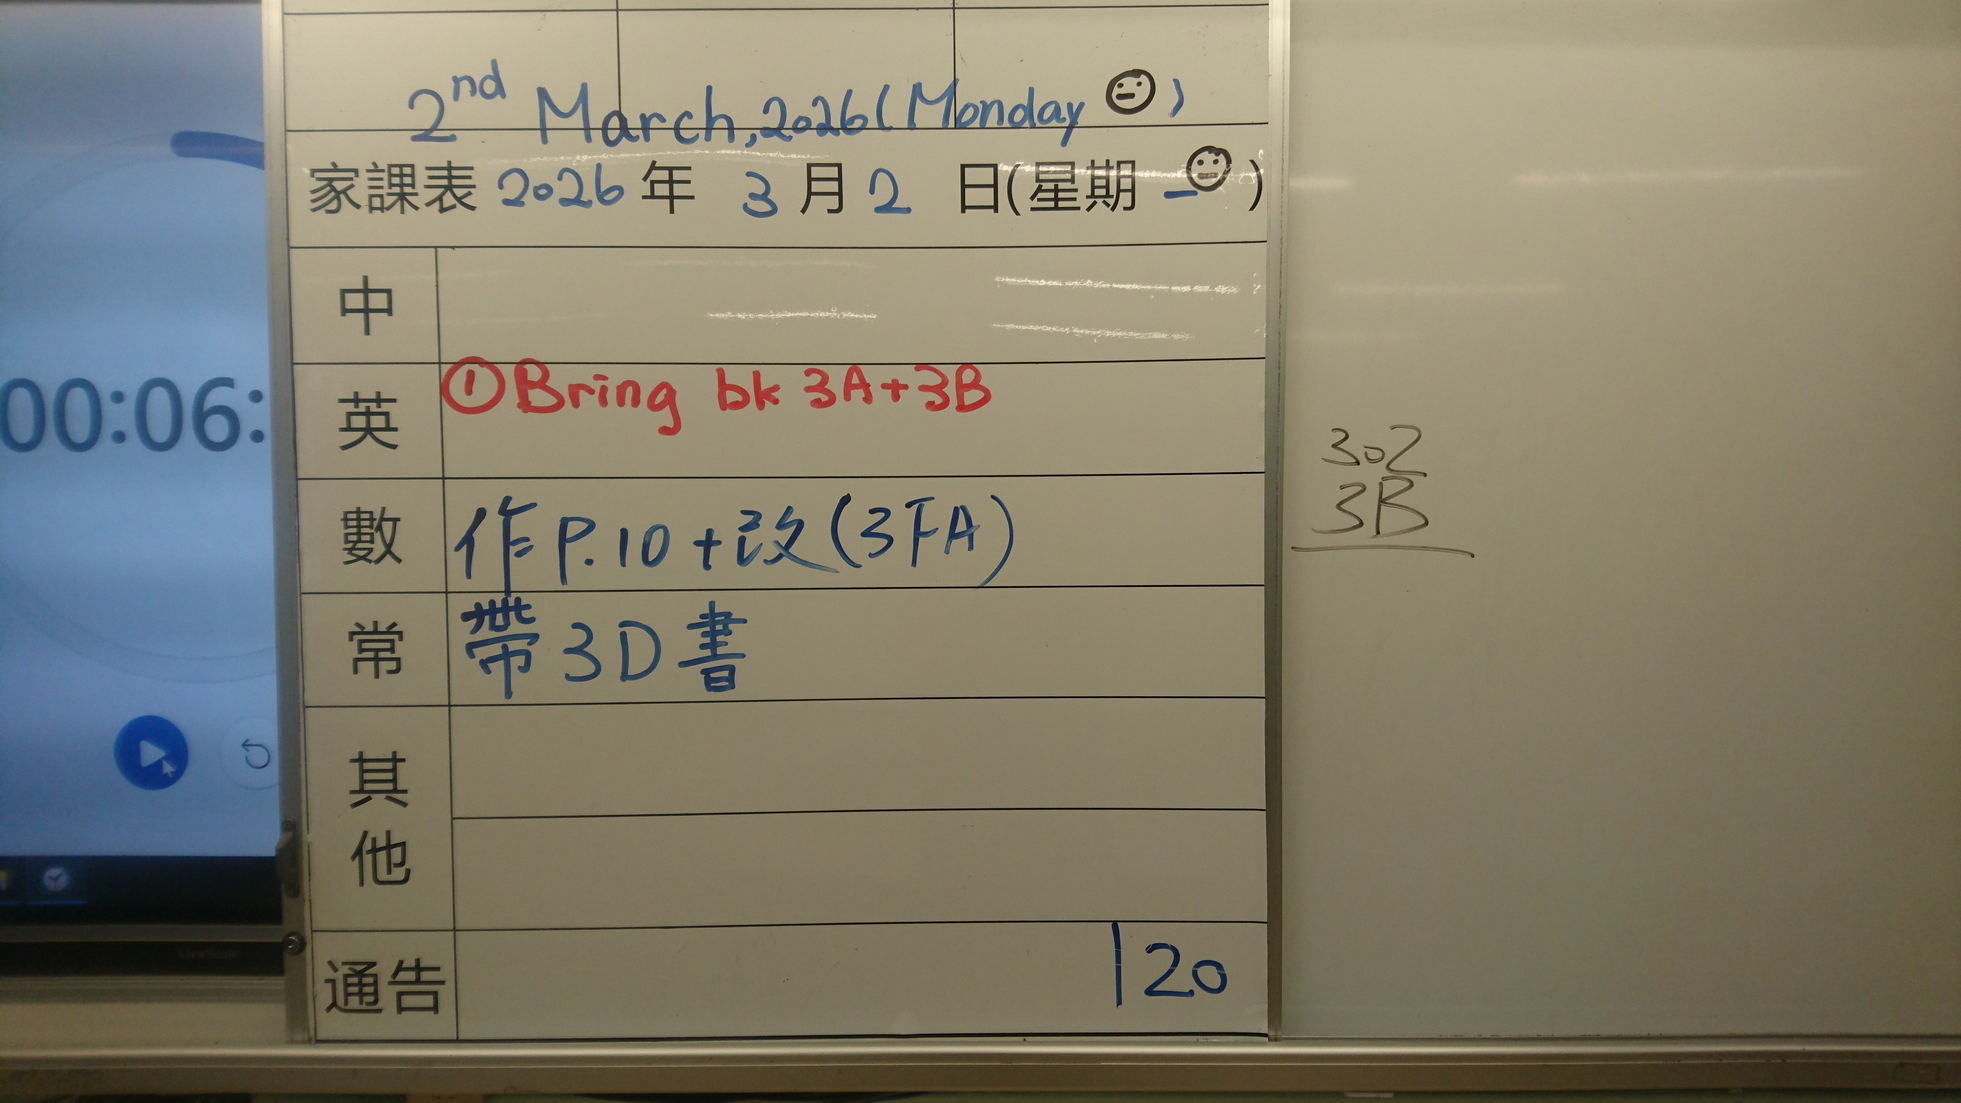 2nd March, 2026 (Monday )
家課表 2026 年 3 月 2 日(星期 一 )
中
英 ①Bring bk 3A+3B
數 作 P.10 + 改 (3下A)
常 帶 3D 書
其他
通告 120
00:06:
302
3B